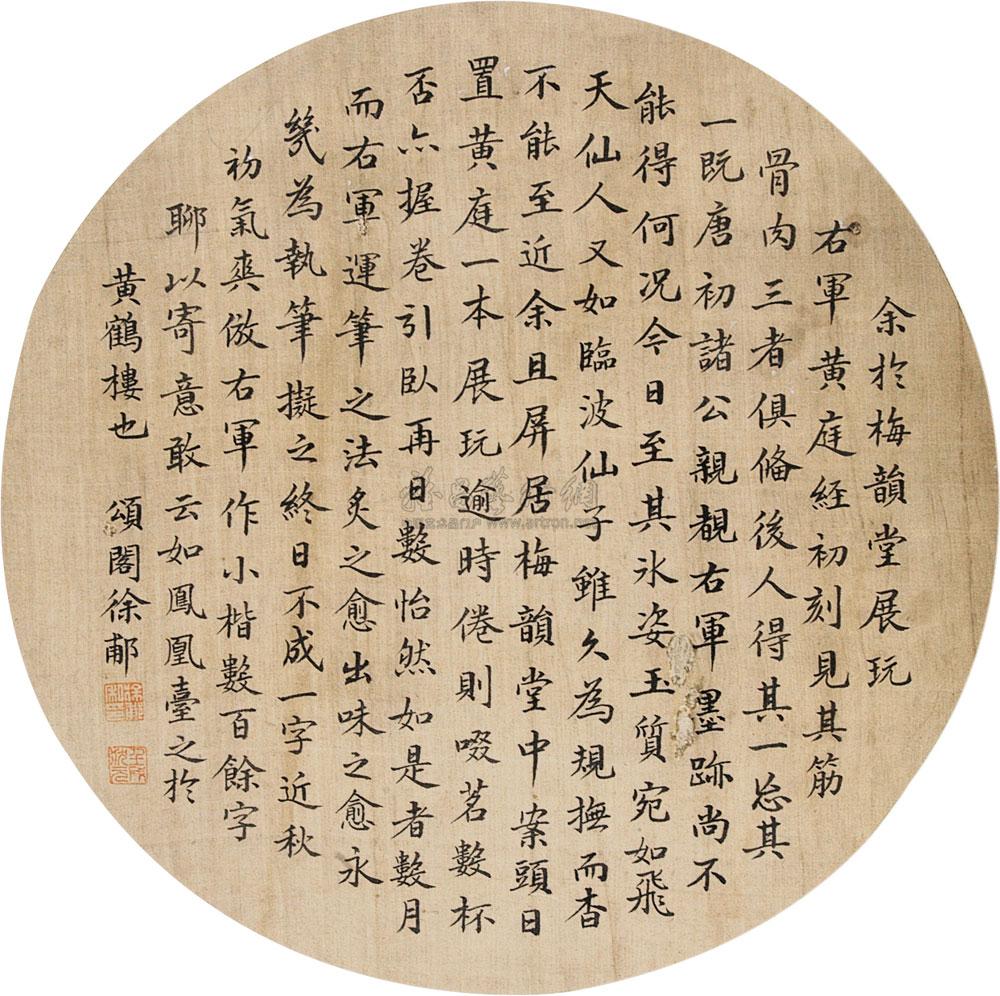 余於梅韻堂展玩
右軍黃庭經初刻見其筋
骨肉三者俱俻後人得其一忘其
一既唐初諸公親覩右軍墨跡尚不
能得何況今日至其氷姿玉質宛如飛
天仙人又如臨波仙子雖久為規撫而杳
不能至近余且屏居梅韻堂中案頭日
置黃庭一本展玩逾時倦則啜茗數杯
否亦握卷引臥再日數怡然如是者數月
而右軍運筆之法炙之愈出味之愈永
幾為執筆擬之終日不成一字近秋
初氣爽倣右軍作小楷數百餘字
聊以寄意敢云如鳳凰臺之於
黃鶴樓也 頌閣徐郙
www.artron.net